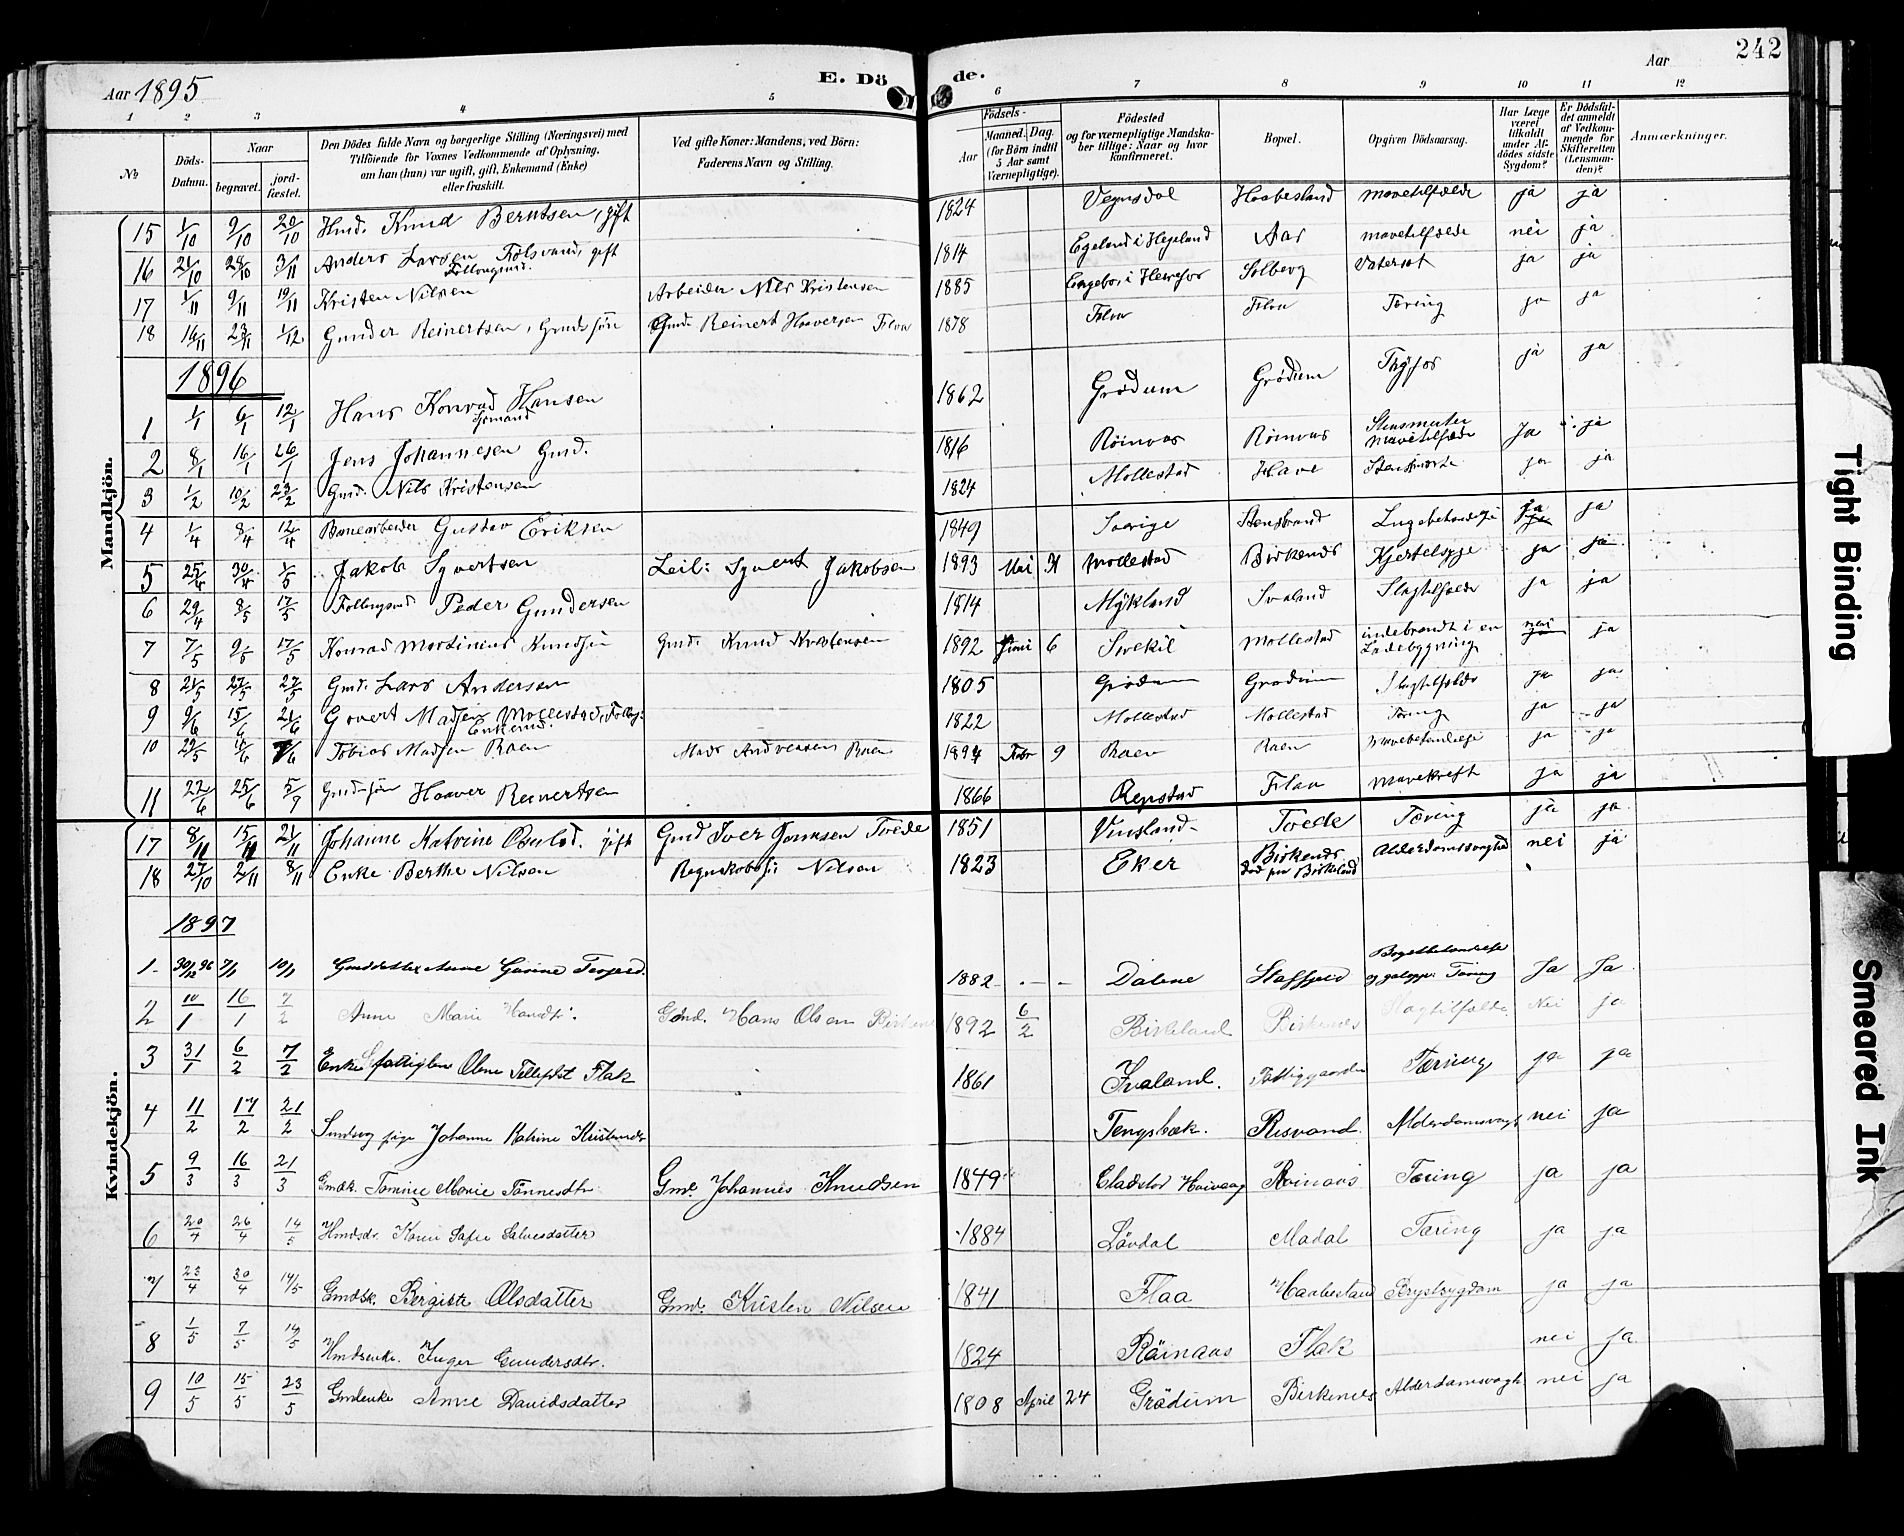 242
Aar 1895
E. Dö de.
Aar
1 2 3 4 5 6 7 8 9 10 11 12
No
Döds-Datum.
Naar begravet. jordfæstet.
Den Dödes fulde Navn og borgerlige Stilling (Næringsvei) med
Tilföiende for Voxnes Vedkommende af Oplysning,
om han (hun) var ugift, gift, Enkemand (Enke)
eller fraskilt.
Ved gifte Koner: Mandens, ved Börn:
Faderens Navn og Stilling.
Födsels-
Aar Maaned. Dag.
(for Börn indtil 5 Aar samt Værnepligtige).
Födested
og for værnepligtige Mandskaber tillige: Naar og hvor konfirmeret.
Bopæl.
Opgiven Dödsaarsag.
Har Læge været tilkaldt under Afdödes sidste Sygdom?
Er Dödsfaldet anmeldt af Vedkommende for Skifteretten (Lensmanden)?
Anmærkninger.
Mandkjön.
15 1/10 9/10 20/10 Gmd. Knud Berntsen, gift 1824 Vegusdal Haabesland mavetilfælde ja ja
16 21/10 28/10 3/11 Anders Larsen gift 1814 Egeland i Hegeland Aas mavetilfælde nei ja
17 1/11 9/11 19/11 Kristen Nilsen Arbeider Nils Kristensen 1885 Solberg Vatersot ja ja
18 16/11 23/11 1/12 Gunder Reinertsen, Gmds sön Gmd. Reinert Haaversen Flaa 1878 Flaa Flaa Tæring ja ja
1896
1 1/1 6/1 12/1 Hans Konrad Hansen 1862 Grödum Grödum Thyfos ja ja
2 8/1 16/1 26/1 Jens Johannesen Gmd. 1816 Röinaas Röinaas mavetilfælde Ja ja
3 1/2 10/2 23/2 Gmd. Nils Kristensen 1824 Mollestad Have ja ja
4 1/4 8/4 12/4 Banearbeider Gustav Eriksen 1849 Sverige Stensbrand Lugebetændelse ja ja
5 25/4 30/4 1/5 Jakob Syvertsen Leil: Syvert Jakobsen 1893 Mai Mollestad Birkenes Kjertelsyge ja ja
6 29/4 8/5 17/5 Peder Gundersen 1814 Mykland Svaland Slagtilfælde ja ja
7 7/5 9/5 17/5 Konrad Martinius Knudsen Gmd. Knud Kristensen 1892 Juni 6 Mollestad indebrændt i en Ladebygning nei ja
8 21/5 27/5 27/5 Gmd. Lars Andersen 1805 Grödum Grödum Slagtilfælde ja ja
9 9/6 15/6 21/6 Govert Madsen Mollestad, Enkemd. 1822 Mollestad Mollestad Tæring ja ja
10 29/5 Tobias Madsen Raen Mads Andreasen Raen 1894 Febr 9 Raen Raen ja ja
11 22/6 25/6 5/7 Gmdssön Haaver Reinertsen 1866 Repstad Flaa Mavekræft ja ja
Kvindekjön.
17 8/11 15/11 21/11 Johanne Katrine gift Gmd Iver Tvede 1851 Tvede Tæring ja ja
18 27/10 2/11 8/11 Enke Berthe Nilsen Nilsen 1823 Eker Birkenes död paa Birkeland Alderdomssvaghed nei ja
1897
1 30/12 96 7/1 10/1 Gmddatter Anne Gurine 1882 Dalene Ja Ja
2 10/1 16/1 7/2 Anne Marie Hansdtr. Gmd. Hans Olsen Birkenes 1892 6/2 Birkeland Birkenes Slagtilfælde Nei ja
3 31/1 6/2 7/2 Enke Olene Flak 1861 Svaland. Fattiggaarden Tæring ja ja
4 11/2 17/2 21/2 Johanne Katrine Risvand. Alderdomssvagh nei ja
5 9/3 16/3 21/3 Gmdk. Tomine Marie Tönnesdtr Gmd. Johannes Knudsen 1849 Röinaas Tæring ja ja
6 20/4 26/4 14/5 Hmdsdr. Karen Sofie Salvesdatter 1884 Lövdal Madal Tæring ja ja
7 23/4 30/4 14/5 Gmdsk. Bergitte Olsdatter Gmd. Kristen Nilsen 1841 Flaa Haabesland Brystsygdom ja ja
8 1/5 7/5 14/5 Hmdsenke. Inger Gundersdtr. 1824 Röinaas Flak nei ja
9 10/5 15/5 23/5 Gmdenke Anne Davidsdatter 1808 April 24 Grödum Birkenes Alderdomsvagh nei ja
Tight Binding
Smeared Ink